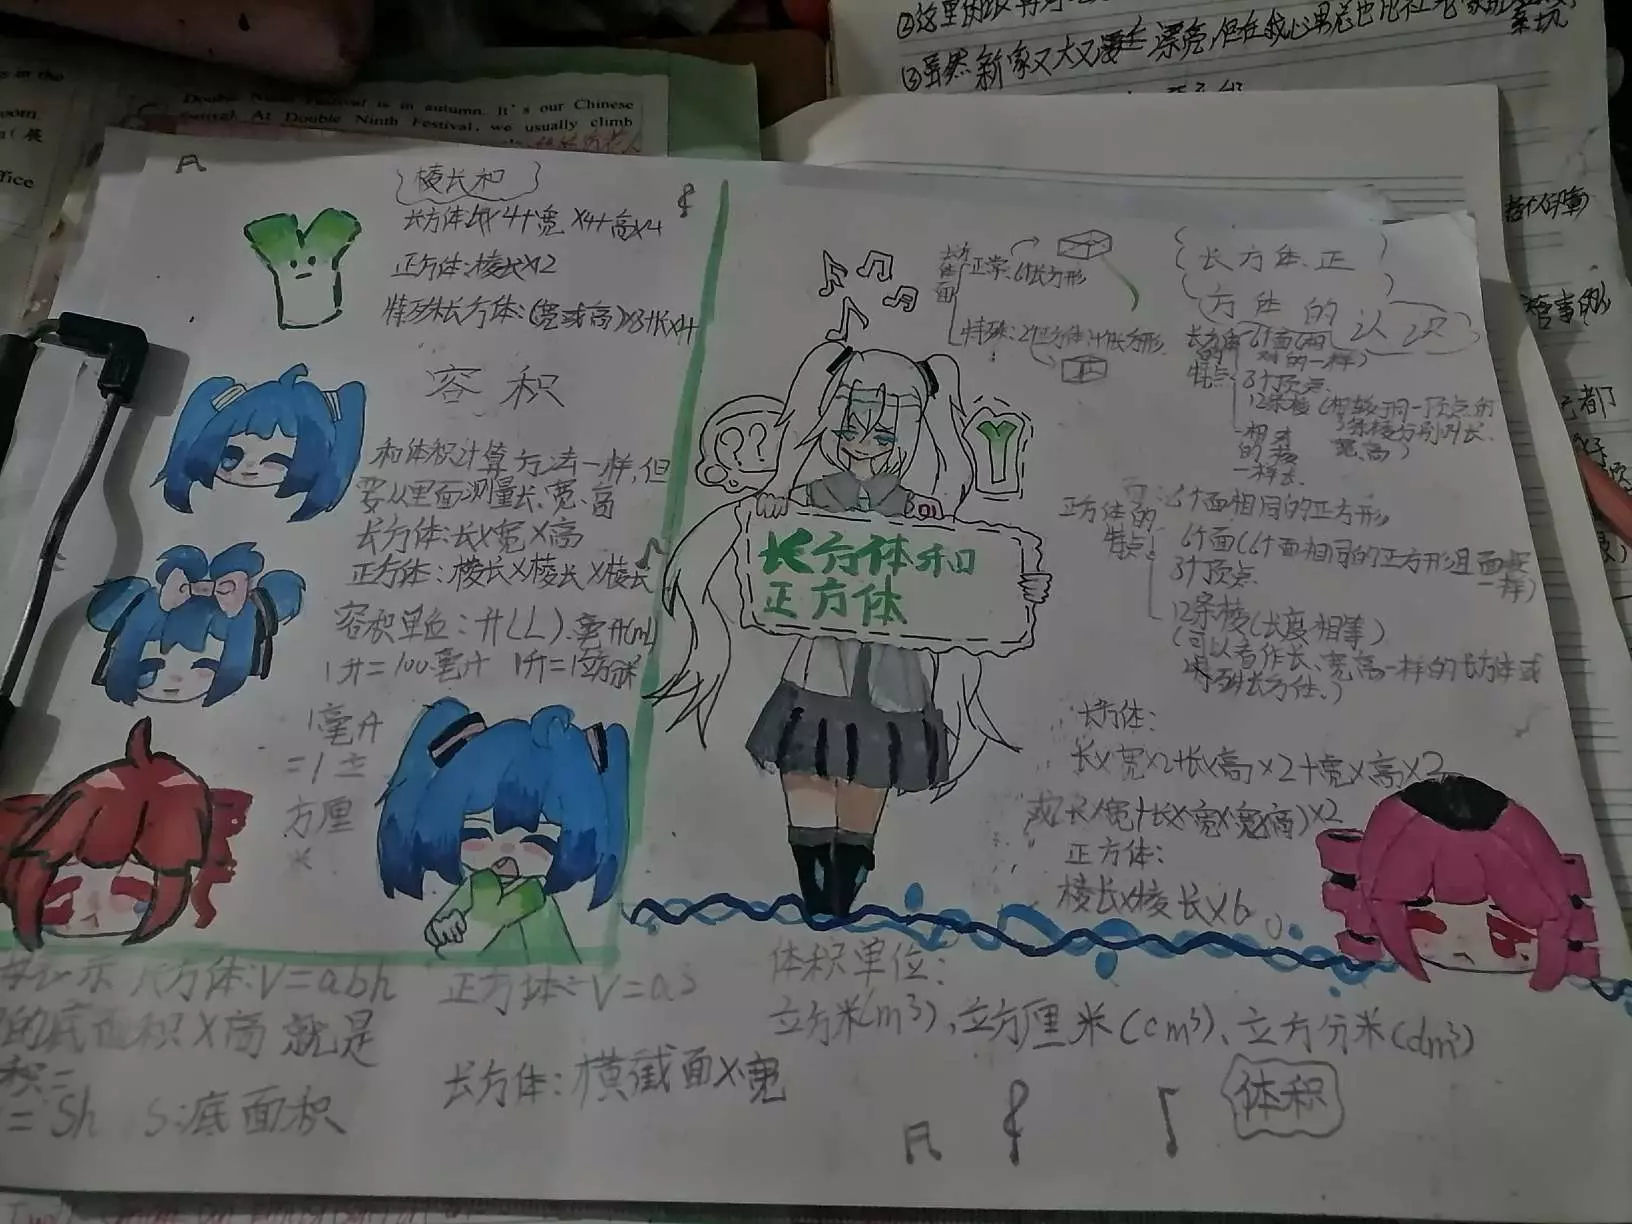 ②这里的
③虽然新家又大又漂亮,但在我心里总也比
Double Ninth Festival is in autumn. It's our Chinese
festival. At Double Ninth Festival, we usually climb
s in the
oom
(展
ffice
棱长和
长方体:长×4+宽×4+高×4
正方体:棱长×12
特殊长方体:(宽或高)×8+长×4
容积
和体积计算方法一样,但
要从里面测量长、宽、高
长方体:长×宽×高
正方体:棱长×棱长×棱长
容积单位:升(L)、毫升(mL)
1升=100毫升 1升=1立方分米
1毫升
=1立
方厘
米
??
长方体和
正方体
长方体面
正常:6个长方形
特殊:2个正方体4个长方形
长方体、正
方体的
认识
长方体的特点
6个面(相对的一样)
8个顶点
12条棱(相较于同一顶点的
3条棱分别叫长、
宽、高)
相对
的棱
一样长
正方体的特点
6个面相同的正方形
6个面(6个面相同的正方形且面积一样)
8个顶点
12条棱(长度相等)
(可以看作长、宽、高一样的长方体或
特殊长方体。)
长方体:
长×宽×2+长×高×2+宽×高×2
或(长×宽+长×宽×宽高)×2
正方体:
棱长×棱长×6
体积单位:
立方米(m³)、立方厘米(cm³)、立方分米(dm³)
体积
示 长方体:V=abh 正方体:V=a³
的底面积×高就是
积=
=Sh S:底面积
长方体:横截面×宽